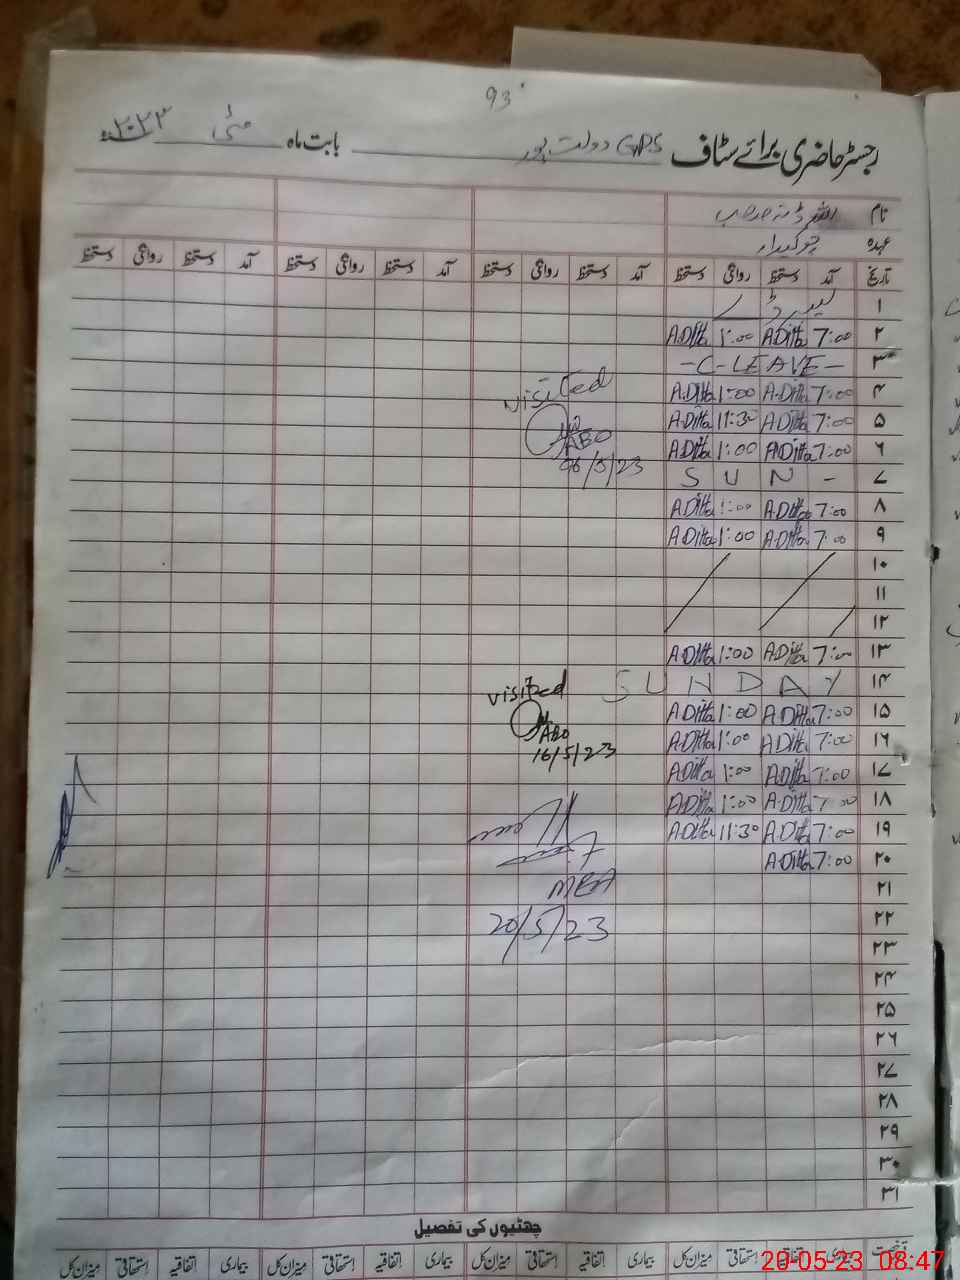 93
رجسٹر حاضری برائے سٹاف GPS دولت پور بابت ماہ مئی ۲۰۲۳ء
نام اللہ ڈتہ صاحب
عہدہ چوکیدار
تاریخ آمد دستخط روانگی دستخط آمد دستخط روانگی دستخط آمد دستخط روانگی دستخط آمد دستخط روانگی دستخط
۱ لیبر ڈے
۲ 7:00 A.Ditta 1:00 A.Ditta
۳ - C - LEAVE -
۴ 7:00 A.Ditta 1:00 A.Ditta
visited
۵ 7:00 A.Ditta 11:30 A.Ditta
ABO
۶ 7:00 A.Ditta 1:00 A.Ditta
06/5/23
۷ S U N -
۸ 7:00 A.Ditta 1:00 A.Ditta
۹ 7:00 A.Ditta 1:00 A.Ditta
۱۰
۱۱
۱۲
۱۳ 7:00 A.Ditta 1:00 A.Ditta
۱۴ S U N D A Y
visited
۱۵ 7:00 A.Ditta 1:00 A.Ditta
ABO
۱۶ 7:00 A.Ditta 1:00 A.Ditta
16/5/23
۱۷ 7:00 A.Ditta 1:00 A.Ditta
۱۸ 7:00 A.Ditta 1:00 A.Ditta
۱۹ 7:00 A.Ditta 11:30 A.Ditta
۲۰ 7:00 A.Ditta
۲۱
MEA
۲۲
20/5/23
۲۳
۲۴
۲۵
۲۶
۲۷
۲۸
۲۹
۳۰
۳۱
چھٹیوں کی تفصیل
رخصت بیماری اتفاقیہ استحقاقی میزان کل بیماری اتفاقیہ استحقاقی میزان کل بیماری اتفاقیہ استحقاقی میزان کل بیماری اتفاقیہ استحقاقی میزان کل
29-05-23 08:47